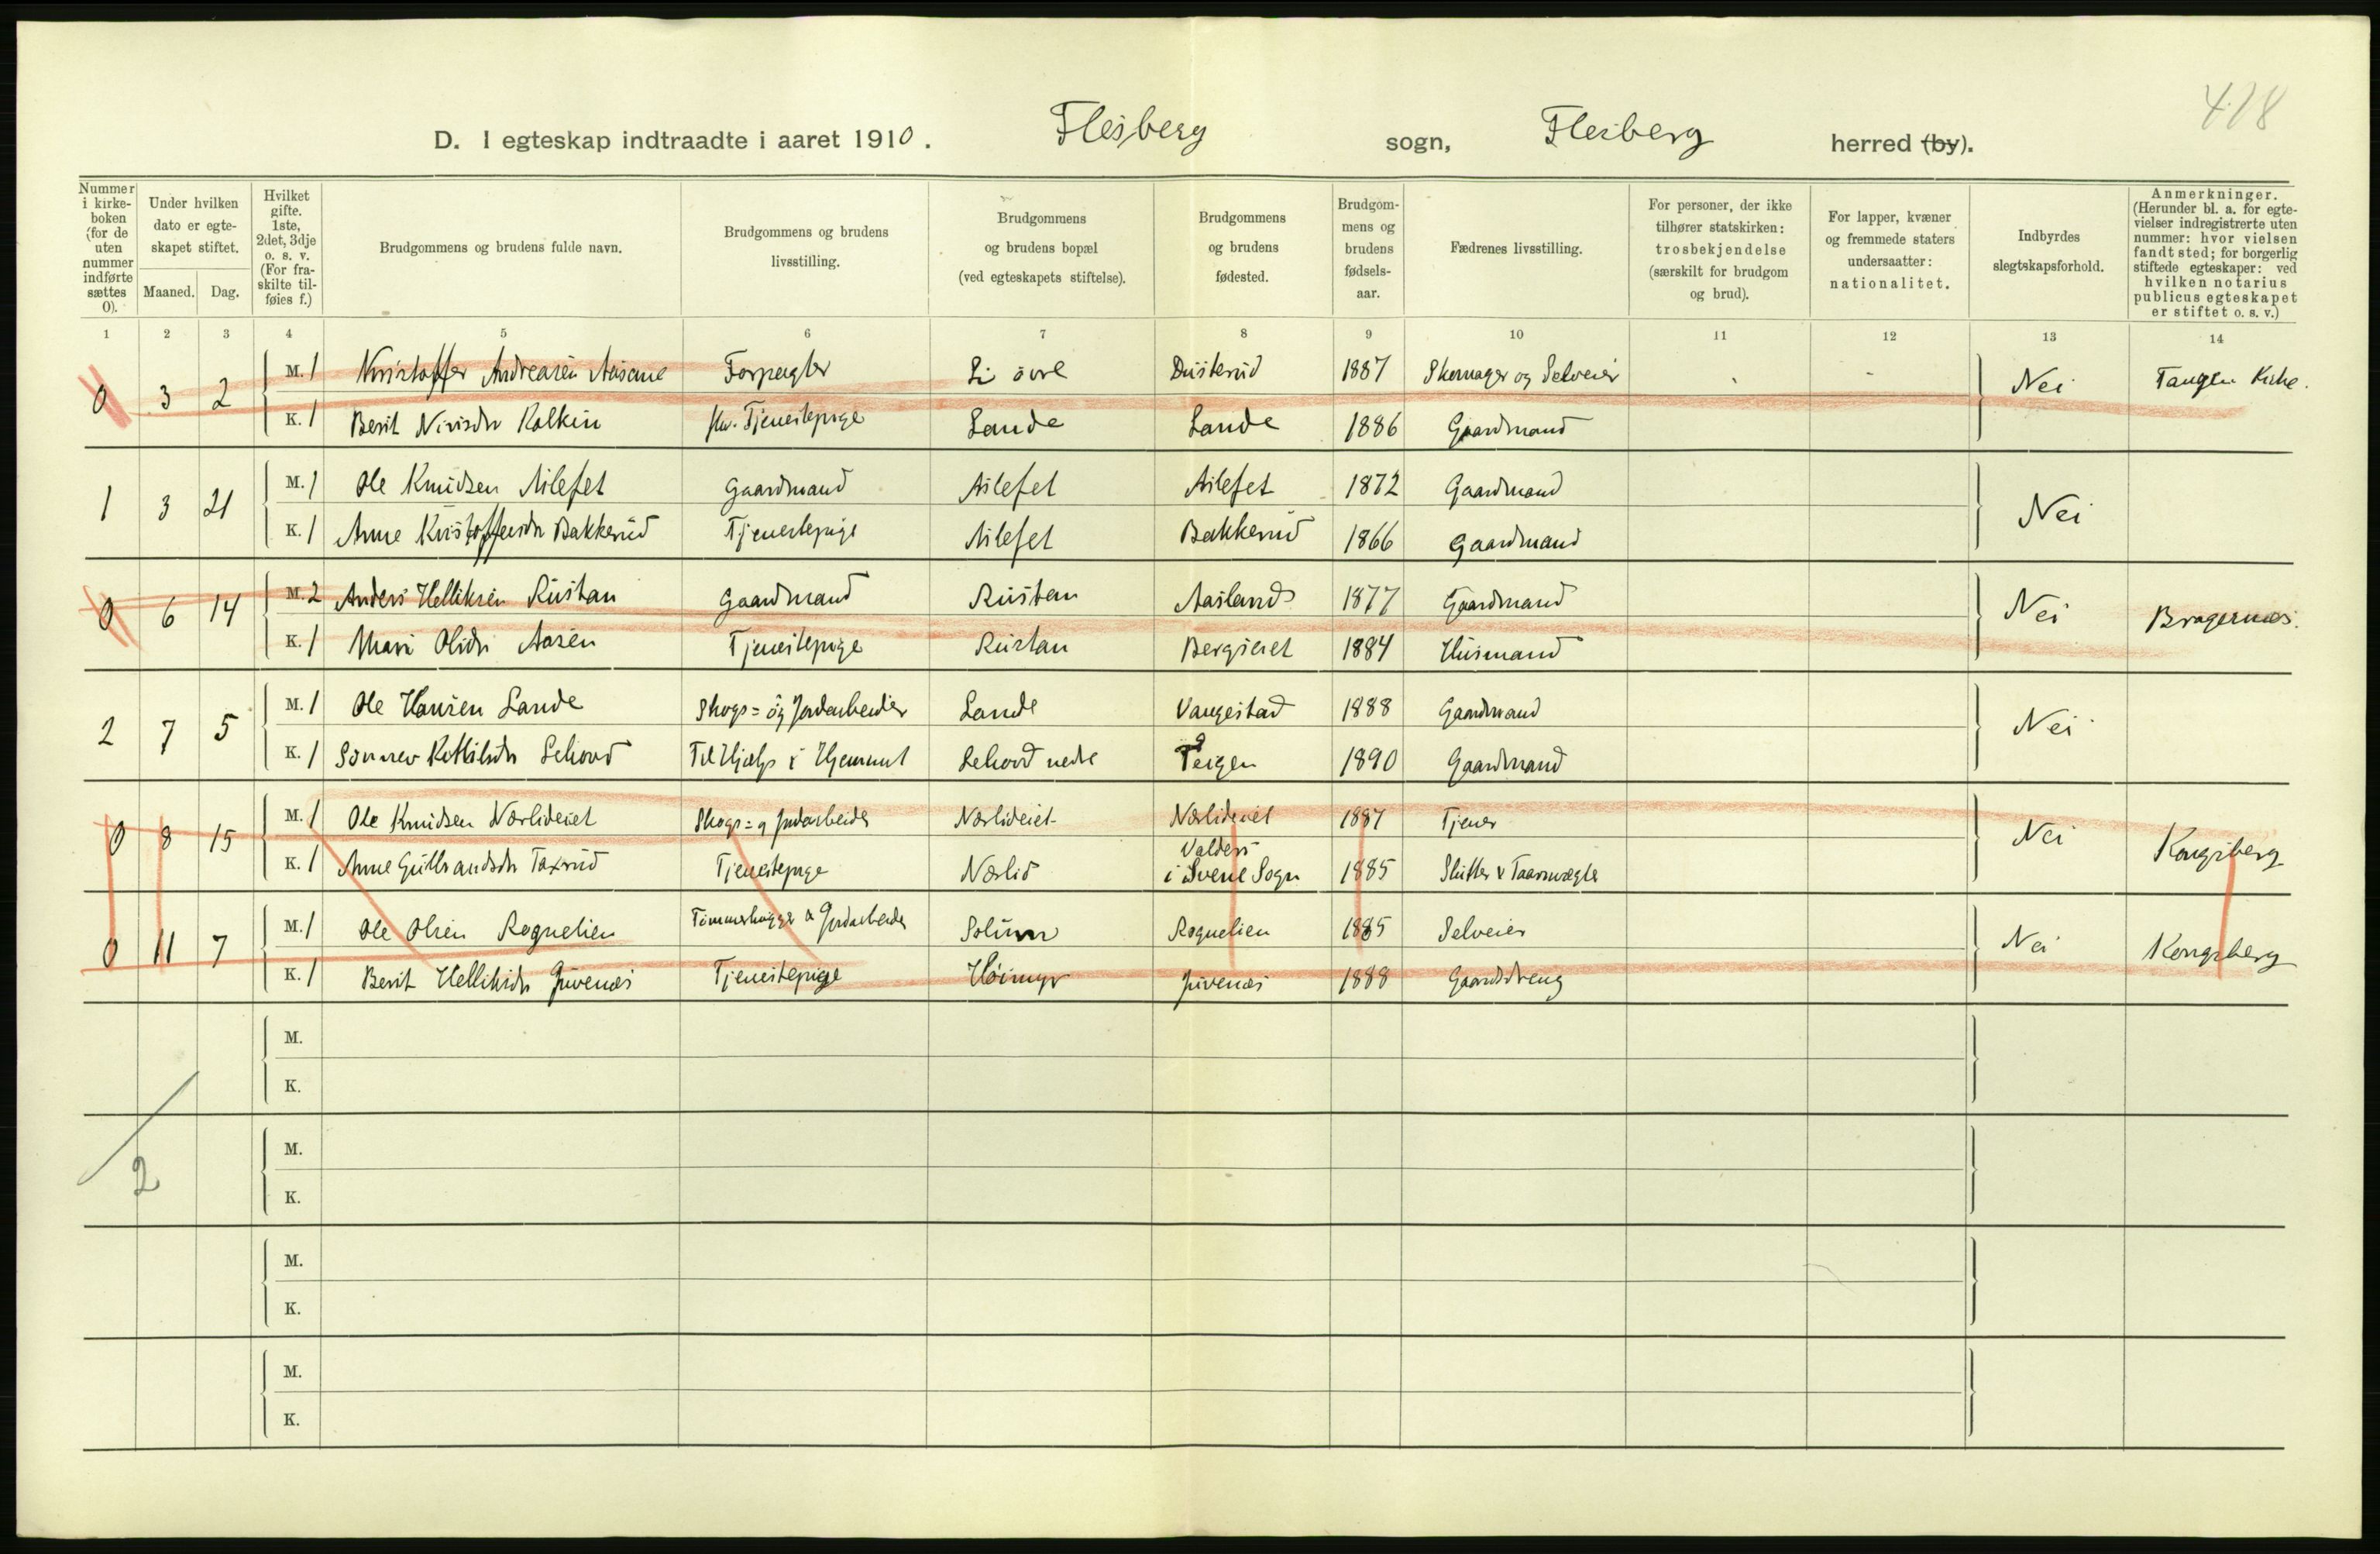 418
D. I egteskap indtraadte i aaret 1910. Flesberg sogn, Flesberg herred (by).
Nummer i kirkeboken (for de uten nummer indførte sættes 0).
Under hvilken dato er egteskapet stiftet.
Maaned. Dag.
Hvilket gifte. 1ste, 2det, 3dje o. s. v. (For fraskilte tilføies f.)
Brudgommens og brudens fulde navn.
Brudgommens og brudens livsstilling.
Brudgommens og brudens bopæl (ved egteskapets stiftelse).
Brudgommens og brudens fødested.
Brudgommens og brudens fødselsaar.
Fædrenes livsstilling.
For personer, der ikke tilhører statskirken: trosbekjendelse (særskilt for brudgom og brud).
For lapper, kvæner og fremmede staters undersaatter: nationalitet.
Indbyrdes slegtskapsforhold.
Anmerkninger. (Herunder bl. a. for egtevielser indregistrerte uten nummer: hvor vielsen fandt sted; for borgerlig stiftede egteskaper: ved hvilken notarius publicus egteskapet er stiftet o. s. v.)
1 2 3 4 5 6 7 8 9 10 11 12 13 14
0 3 2 M. 1 Kristoffer Andreasen Aasane Forpagter Li övre Dusterud 1887 Skomager og Selveier Nei Tangen Kirke.
K. 1 Berit Nirisdr Kolkin Tjenestepige Lande Lande 1886 Gaardmand
1 3 21 M. 1 Ole Knudsen Aslefet Gaardmand Aslefet Aslefet 1872 Gaardmand Nei
K. 1 Anne Kristoffersdr Bakkerud Tjenestepige Aslefet Bakkerud 1866 Gaardmand
0 6 14 M. 2 Anders Helliksen Rustan Gaardmand Rustan Aasland 1877 Gaardmand Nei Bragernæs.
K. 1 Mari Olsdr Aasen Tjenestepige Rustan Bergseiet 1884 Husmand
2 7 5 M. 1 Ole Hansen Lande Skogs= og Jordarbeider Lande Vangestad 1888 Gaardmand Nei
K. 1 Sönnev Kittilsdr Lehovd Til Hjælp i Hjemmet Lehovd nedre Teigen 1890 Gaardmand
0 8 15 M. 1 Ole Knudsen Nærlideiet Skogs= og Jordarbeider Nærlideiet Nærlideiet 1887 Tjener Nei Kongsberg
K. 1 Anne Gulbrandsdr Taxrud Tjenestepige Nærlid Valders i Svene Sogn 1885 Slutter & Taarnvægter
0 11 7 M. 1 Ole Olsen Roguelien Tømmerhugger & Jordarbeider Solum Roguelien 1885 Selveier Nei Kongsberg
K. 1 Berit Helliksdr Juvenæs Tjenestepige Höimyr Juvenæs 1888 Gaardsdreng
M.
K.
M.
2
K.
M.
K.
M.
K.